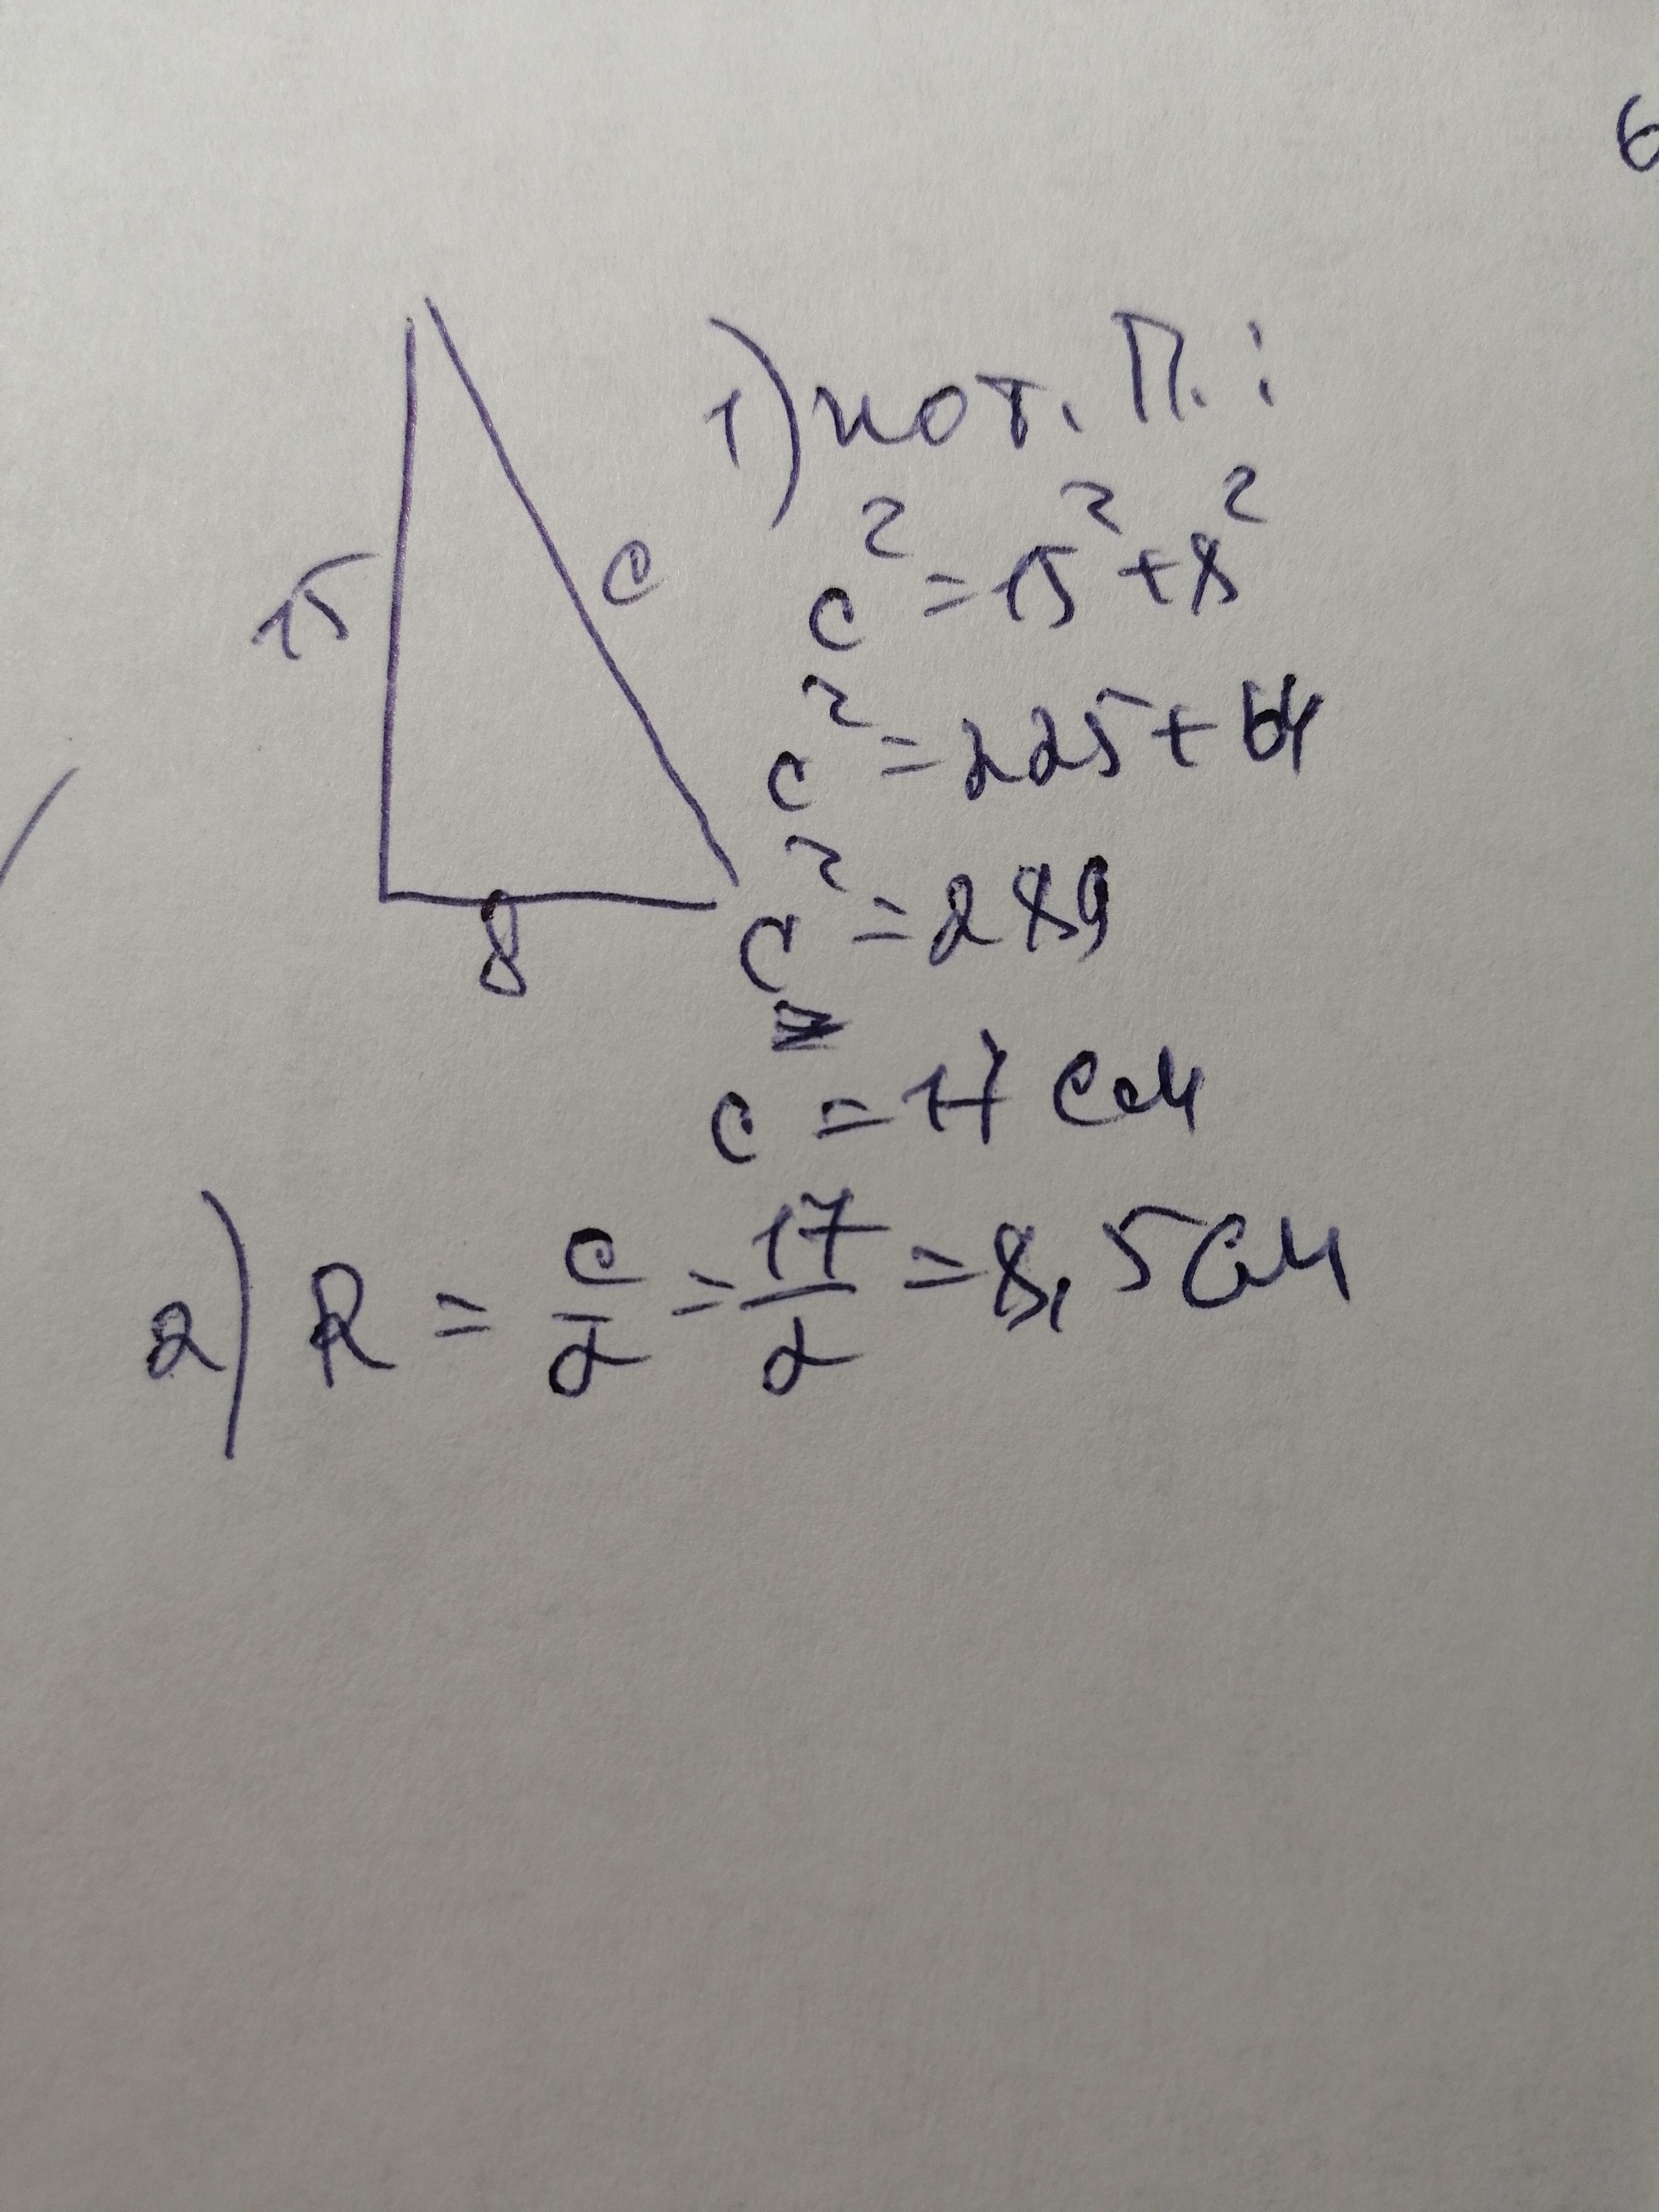 6
1) по т. П. :
15
c
c² = 15² + 8²
c² = 225 + 64
8
c² = 289
c = 17 см
2) R = c/2 = 17/2 = 8,5 см